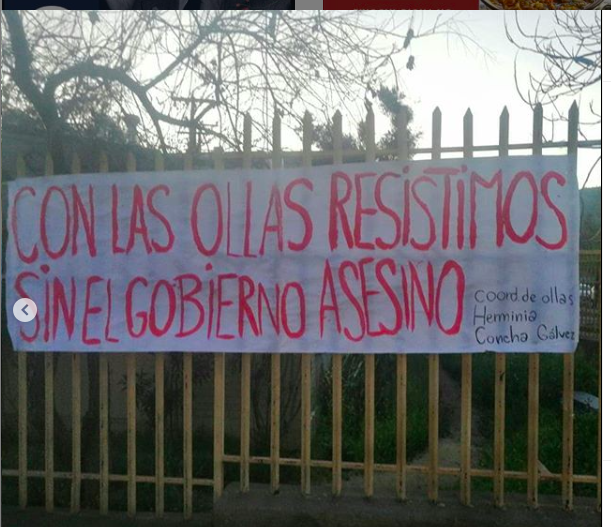 CON LAS OLLAS RESiSTiMOS
SiN EL GOBiERNO ASESiNO
Coord. de ollas
Herminia
Concha Gálvez